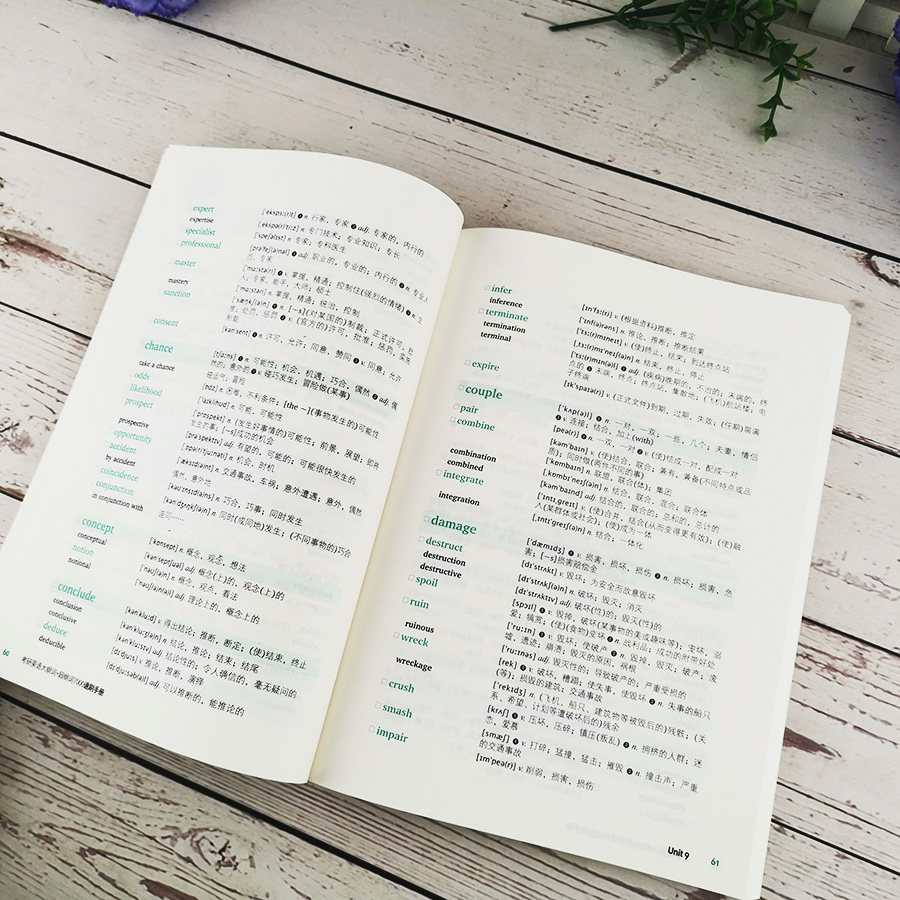 expert ['ekspɜː(r)t] ❶ n. 行家，专家 ❷ adj. 专家的，内行的
expertise [ˌekspə(r)'tiːz] n. 专门技术；专业知识；专长
specialist ['speʃəlɪst] n. 专家；专科医生
professional [prə'feʃ(ə)nəl] ❶ adj. 职业的，专业的；内行的 ❷ n. 专业人
员，专家
master ['mɑːstə(r)] ❶ v. 掌握，精通；控制住(强烈的情绪) ❷ n. 主
人；专家，能手，大师；硕士
mastery ['mɑːstəri] n. 掌握，精通；统治，控制
sanction ['sæŋkʃ(ə)n] ❶ n. [~s](对某国的)制裁；正式许可，批
准；处罚，惩罚 ❷ v. (官方的)许可，批准；惩罚，实施
制裁
consent [kən'sent] ❶ n. 许可，允许；同意，赞同 ❷ v. 同意；允许
chance [tʃɑːns] ❶ n. 可能性；机会，机遇；巧合，偶然 ❷ adj. 偶
然的；意外的 ❸ v. 碰巧发生；冒险做(某事)
take a chance 碰运气；冒险
odds [ɒdz] n. 困难，不利条件；[the ~](事物发生的)可能性
likelihood ['laɪklihʊd] n. 可能，可能性
prospect ['prɒspekt] n. (发生好事情的)可能性；前景，展望；即将
发生的事；[~s]成功的机会
prospective [prə'spektɪv] adj. 有望的，可能的；可能很快发生的
opportunity [ˌɒpə(r)'tjuːnəti] n. 机会，时机
accident ['æksɪdənt] n. 交通事故，车祸；意外遭遇；意外，偶然
by accident 偶然，意外地
coincidence [kəʊ'ɪnsɪdəns] n. 巧合，巧事；同时发生
conjunction [kən'dʒʌŋkʃ(ə)n] n. 同时(或同地)发生；(不同事物的)巧合
in conjunction with 连同……
concept ['kɒnsept] n. 概念，观念，想法
conceptual [kən'septʃuəl] adj. 概念(上)的，观念(上)的
notion ['nəʊʃ(ə)n] n. 概念，观点，看法
notional ['nəʊʃ(ə)nəl] adj. 理论上的，概念上的
conclude [kən'kluːd] v. 得出结论；推断，断定；(使)结束，终止
conclusion [kən'kluːʒ(ə)n] n. 结论，推论；结束；结尾
conclusive [kən'kluːsɪv] adj. 结论性的；令人确信的，毫无疑问的
deduce [dɪ'djuːs] v. 推论，推断，演绎
deducible [dɪ'djuːsəb(ə)l] adj. 可以推断的，能推论的
60
infer [ɪn'fɜː(r)] v. (根据资料)推断，推定
inference ['ɪnf(ə)rəns] n. 推论，推断；推断结果
terminate ['tɜː(r)mɪneɪt] v. (使)终止，结束；到达终点站
termination [ˌtɜː(r)mɪ'neɪʃ(ə)n] n. 结束，终止，停止
terminal ['tɜː(r)mɪn(ə)l] ❶ adj. (疾病)晚期的，不治的；末端的，终
点的 ❷ n. 末端，终点；终点站，集散地；(飞机)航站楼；电
子终端
expire [ɪk'spaɪə(r)] v. (正式文件)到期，过期，失效；(任期)届满
couple ['kʌp(ə)l] ❶ n. 一对，一双；一些，几个；夫妻，情侣
❷ v. 连接；结合，加上(with)
pair [peə(r)] ❶ n. 一双，一对 ❷ v. (使)结成一对，配成一对
combine [kəm'baɪn] v. (使)结合，联合；兼有，兼备(不同特点或品
质)；同时做(两件不同的事)
['kɒmbaɪn] n. 联盟，联合(体)；集团
combination [ˌkɒmbɪ'neɪʃ(ə)n] n. 结合，联合，混合；联合体
combined [kəm'baɪnd] adj. 结合的，联合的；总和的，总计的
integrate ['ɪntɪˌɡreɪt] v. (使)合并，结合(从而变得更有效)；(使)融
入(某群体或社会)；(使)成为一体
integration [ˌɪntɪ'ɡreɪʃ(ə)n] n. 结合；一体化
damage ['dæmɪdʒ] ❶ v. 损害，损坏，损伤 ❷ n. 损坏；损害，危
害；[~s]损害赔偿金
destruct [dɪ'strʌkt] v. 毁坏；为安全而故意毁坏
destruction [dɪ'strʌkʃ(ə)n] n. 破坏；毁灭；消灭
destructive [dɪ'strʌktɪv] adj. 破坏(性)的；毁灭(性)的
spoil [spɔɪl] ❶ v. 毁掉，破坏(某事物的美或趣味等)；宠坏，溺
爱；犒赏；(使)(食物)变坏 ❷ n. 战利品；成功的附带好处
ruin ['ruːɪn] ❶ v. 毁坏，使破产 ❷ n. 毁掉，毁灭；破产；废
墟，遗迹；崩溃；毁灭的原因，祸根
ruinous ['ruːɪnəs] adj. 毁灭性的；导致破产的；严重受损的
wreck [rek] ❶ v. 破坏，糟蹋；使失事，使毁坏 ❷ n. 失事的船只
(等)；损毁的建筑；交通事故
wreckage ['rekɪdʒ] n. (飞机，船只、建筑物等被毁后的)残骸；(关
系、希望、计划等遭破坏后的)残余
crush [krʌʃ] ❶ v. 压坏，压碎；镇压(叛乱) ❷ n. 拥挤的人群；迷
恋，爱慕
smash [smæʃ] ❶ v. 打碎；猛撞，猛击；摧毁 ❷ n. 撞击声；严重
的交通事故
impair [ɪm'peə(r)] v. 削弱，损害，损伤
Unit 9 61